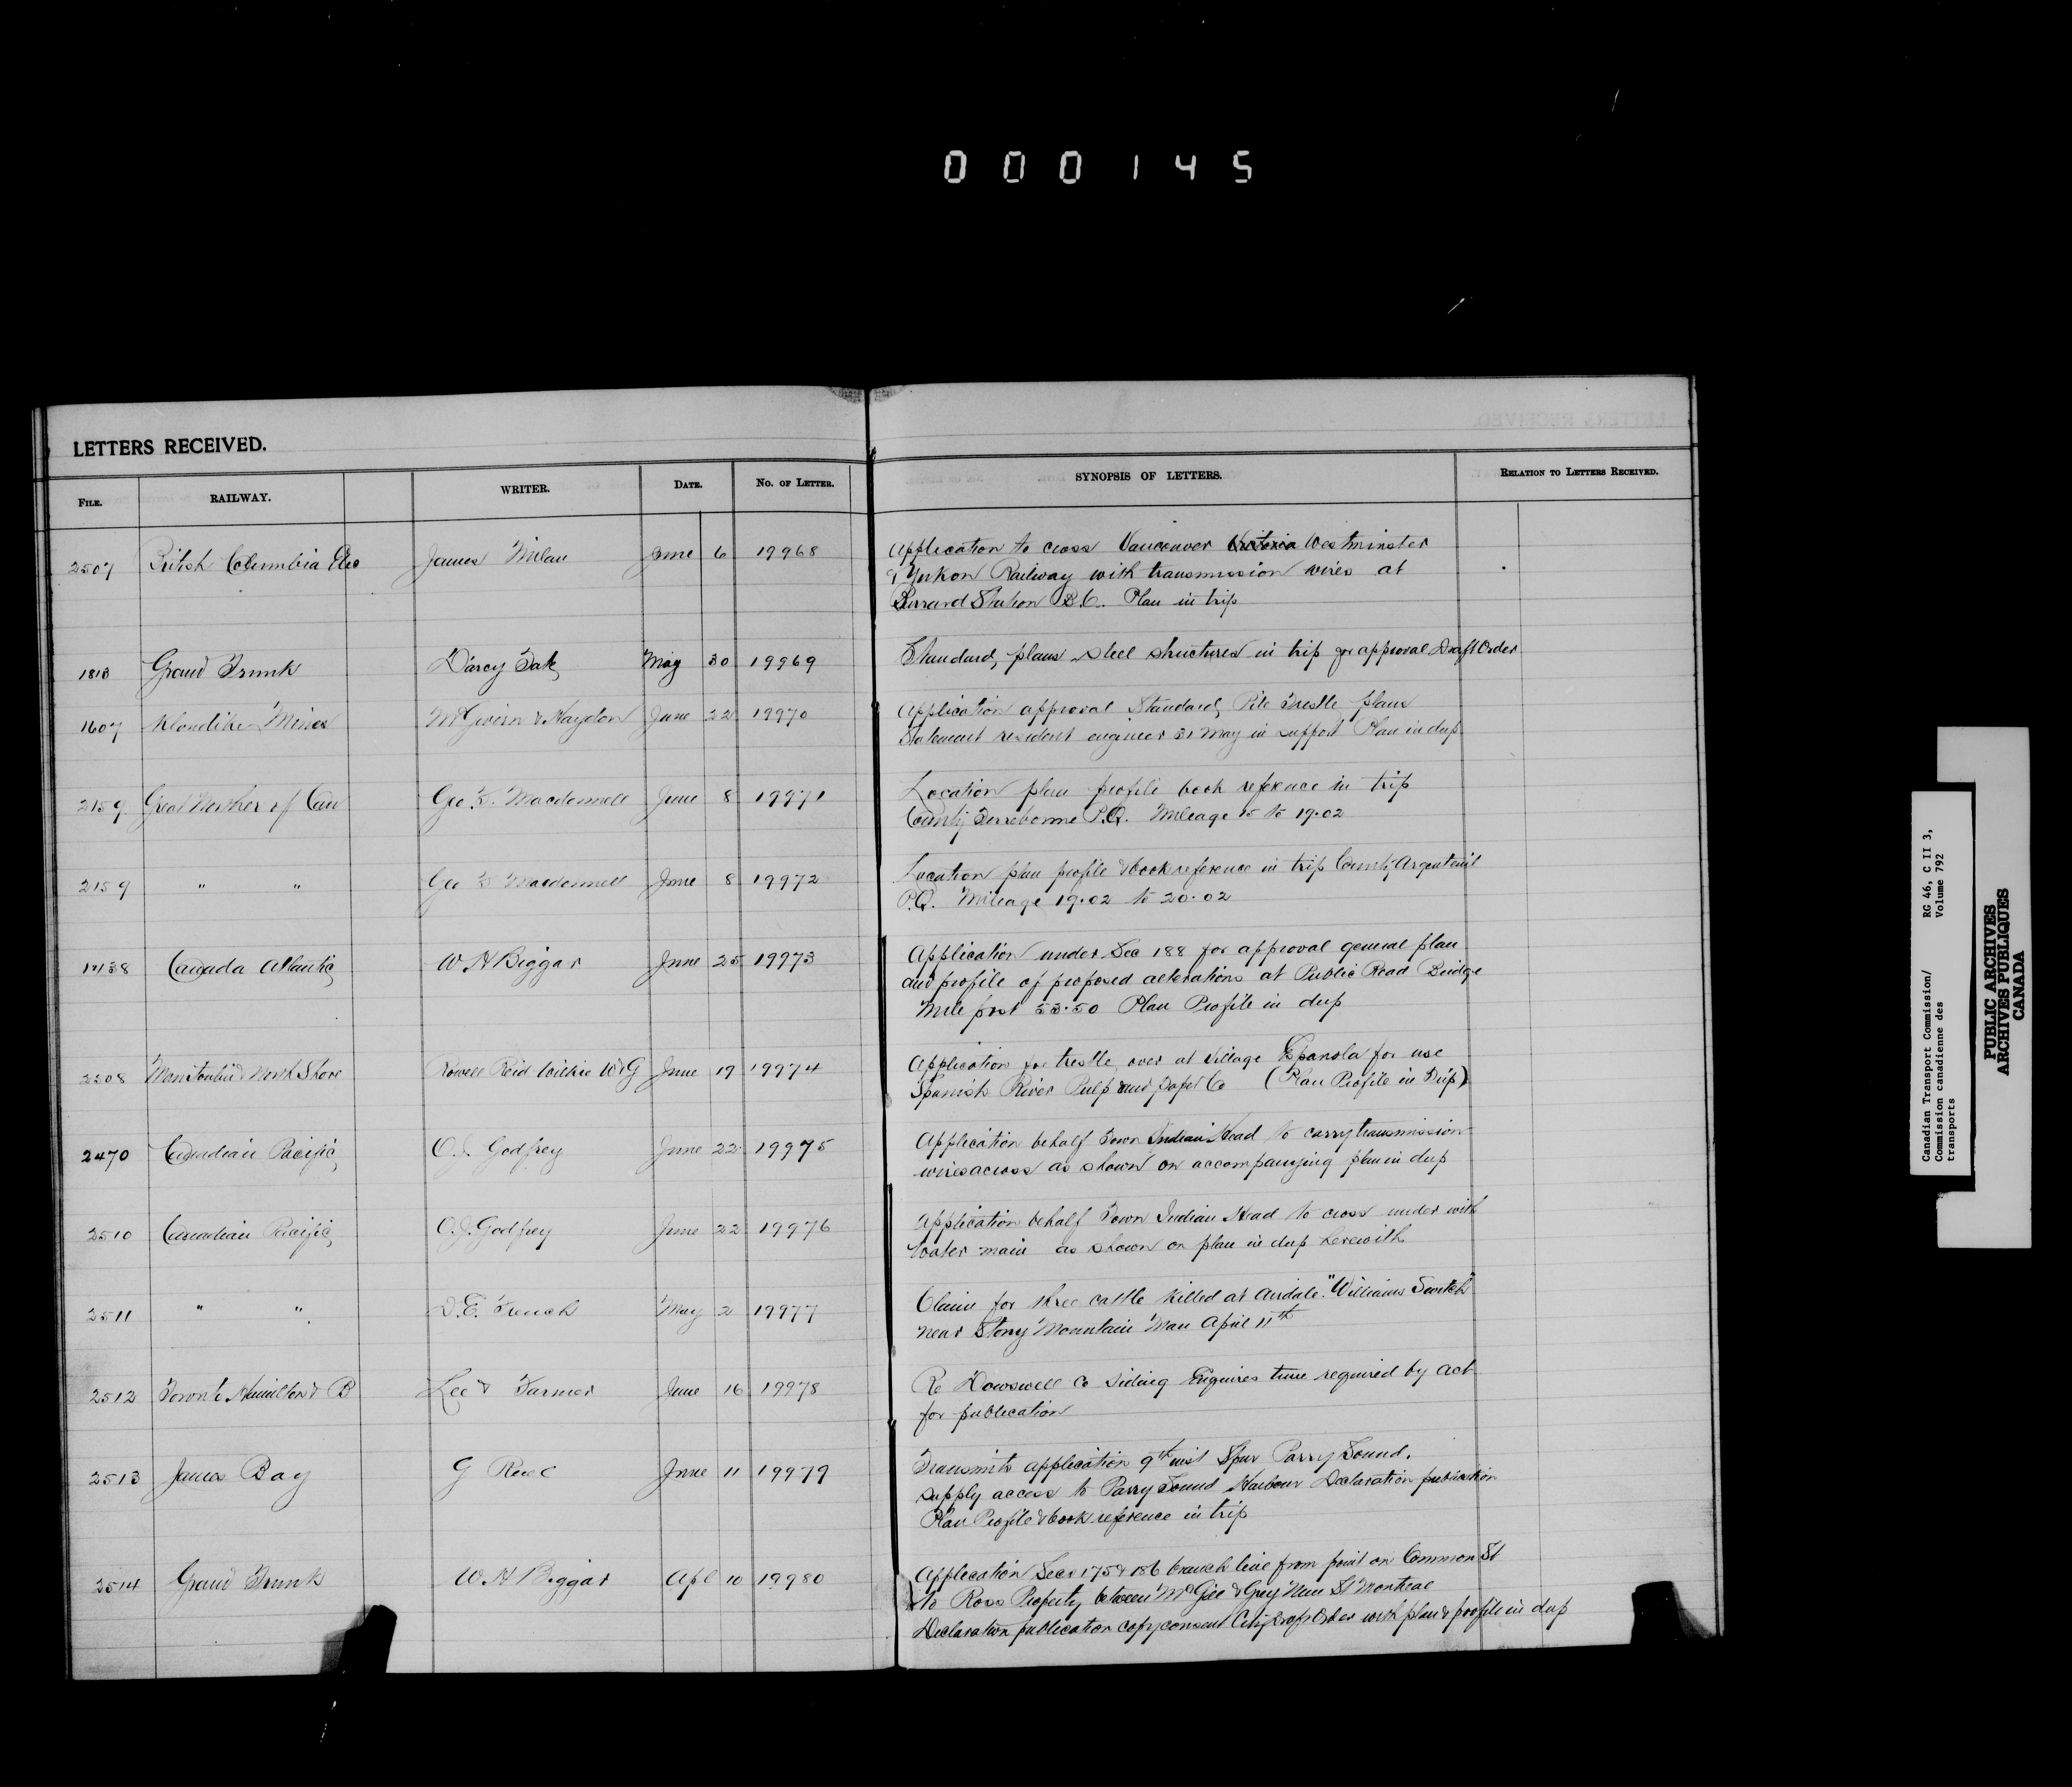 000145
LETTERS RECEIVED.
FILE. RAILWAY. WRITER. DATE. NO. OF LETTER. SYNOPSIS OF LETTERS. RELATION TO LETTERS RECEIVED.
2507 British Columbia Elec James Milau June 6 19968 Application to cross Vancouver Victoria Westminster
& Yukon Railway with transmission wires at
Burrard Station B.C. Plan in trip
1813 Grand Trunk D'arcy Tate May 30 19969 Standard, plans steel structures in trip for approval Draft Order
1607 Klondike Mines McGivern & Haydon June 22 19970 Application approval Standard, Pile Trestle plans
Statement resident engineer 31 May in support Plan in dup
2159 Great Norther of Can Geo K. Macdonnell June 8 19971 Location plan profile book reference in trip
County Terrebonne P.Q. Mileage 15 to 19.02
2159 " " Geo K Macdonnell June 8 19972 Location plan profile & book reference in trip County Argenteuil
P.Q. Mileage 19.02 to 20.02
Canada Atlantic W H Biggar June 25 19973 Application under Sec 188 for approval general plan
and profile of proposed alterations at Public Road Bridge
Mile post 53.50 Plan Profile in dup
2508 Manitoulin & North Shore Rowell Reid Wilkie W & G June 19 19974 Application for trestle over at Village Espanola for use
Spanish River Pulp and Paper Co (Plan Profile in Dup)
2470 Canadian Pacific O.J. Godfrey June 22 19975 Application behalf Town Indian Head to carry transmission
wires across as shown on accompanying plan in dup
2510 Canadian Pacific O.J. Godfrey June 22 19976 Application behalf Town Indian Head to cross under with
water main as shown on plan in dup herewith
2511 " " D.E. French May 2 19977 Claim for three cattle killed at Airdale. "Williams Switch"
near Stony Mountain Man April 11th
2512 Toronto Hamilton & B Lee & Farmer June 16 19978 Re Dowswell Co Siding Enquires time required by act
for publication
2513 James Bay G Ruel June 11 19979 Transmits application 9th inst Spur Parry Sound.
supply access to Parry Sound Harbour Declaration publication
Plan Profile & book reference in trip
2514 Grand Trunk W. H Biggar Apl 10 19980 Application Secs 175 & 186 branch line from point on Common St
to Ross Property between McGill & Grey Nun St Montreal
Declaration publication copy consent City Draft Order with plan & profile in dup
Canadian Transport Commission/ RG 46, C II 3,
Commission canadienne des Volume 792
transports
PUBLIC ARCHIVES
ARCHIVES PUBLIQUES
CANADA